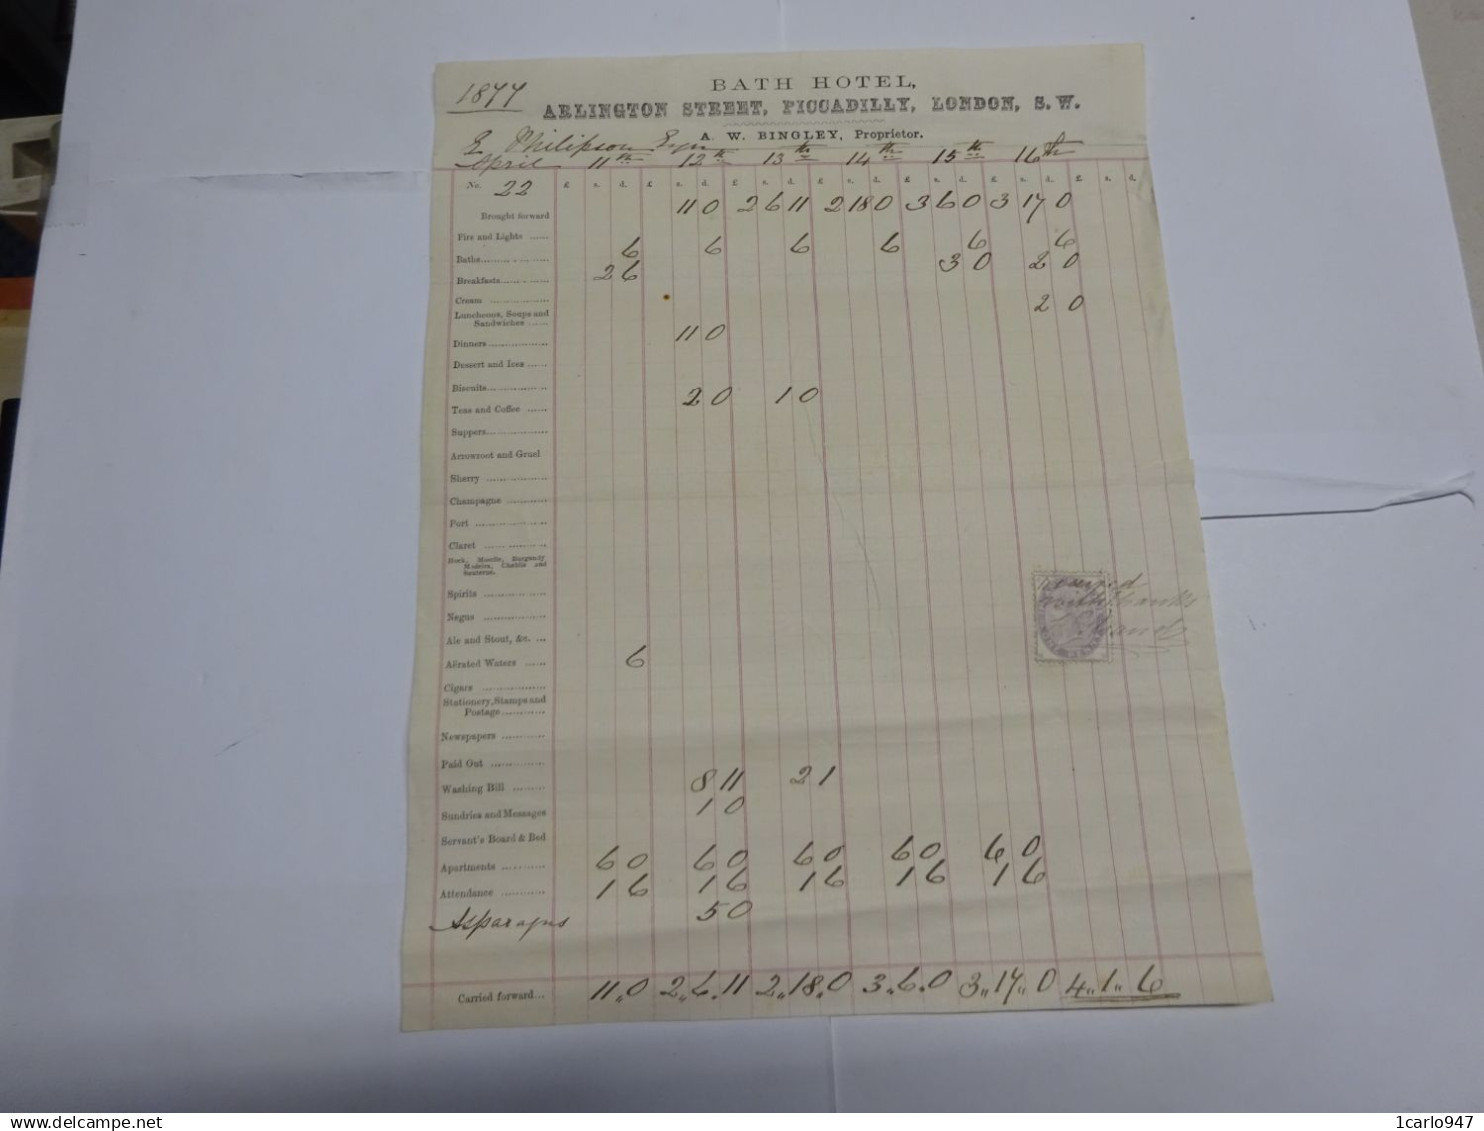 1877
BATH HOTEL,
ARLINGTON STREET, PICCADILLY, LONDON, S.W.
A. W. BINGLEY, Proprietor.
E Philipson Esqr
April 11th 12th 13th 14th 15th 16th
No. 22 £ s. d. £ s. d. £ s. d. £ s. d. £ s. d. £ s. d. £ s. d.
Brought forward 11 0 2 6 11 2 18 0 3 6 0 3 17 0
Fire and Lights 6 6 6 6 6 6
Baths 2 6 3 0 2 0
Breakfasts
Cream 2 0
Luncheons, Soups and
Sandwiches 11 0
Dinners
Dessert and Ices
Biscuits 2 0 1 0
Teas and Coffee
Suppers
Arrowroot and Gruel
Sherry
Champagne
Port
Claret
Hock, Moselle, Burgundy
Madeira, Chablis and
Sauterne.
Spirits
Negus
Ale and Stout, &c.
Aërated Waters 6
Cigars
Stationery, Stamps and
Postage
Newspapers
Paid Out
Washing Bill 8 11 2 1
Sundries and Messages 1 0
Servant's Board & Bed
Apartments 6 0 6 0 6 0 6 0 6 0
Attendance 1 6 1 6 1 6 1 6 1 6
Asparagus 5 0
Carried forward 11,,0 2,,6,,11 2,,18,,0 3,,6,,0 3,,17,,0 4,,1,,6
with thanks
1carlo947